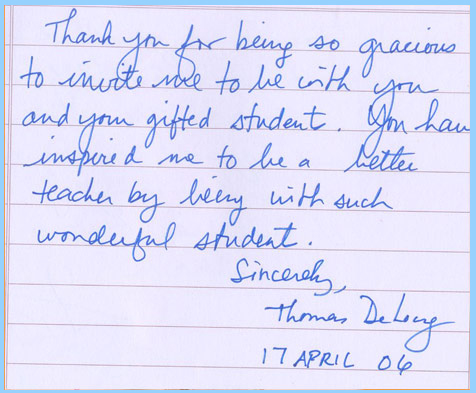 Thank you for being so gracious
to invite me to be with you
and your gifted student. You hav
inspired me to be a better
teacher by being with such
wonderful student.
Sincerely,
Thomas DeLong
17 APRIL 06